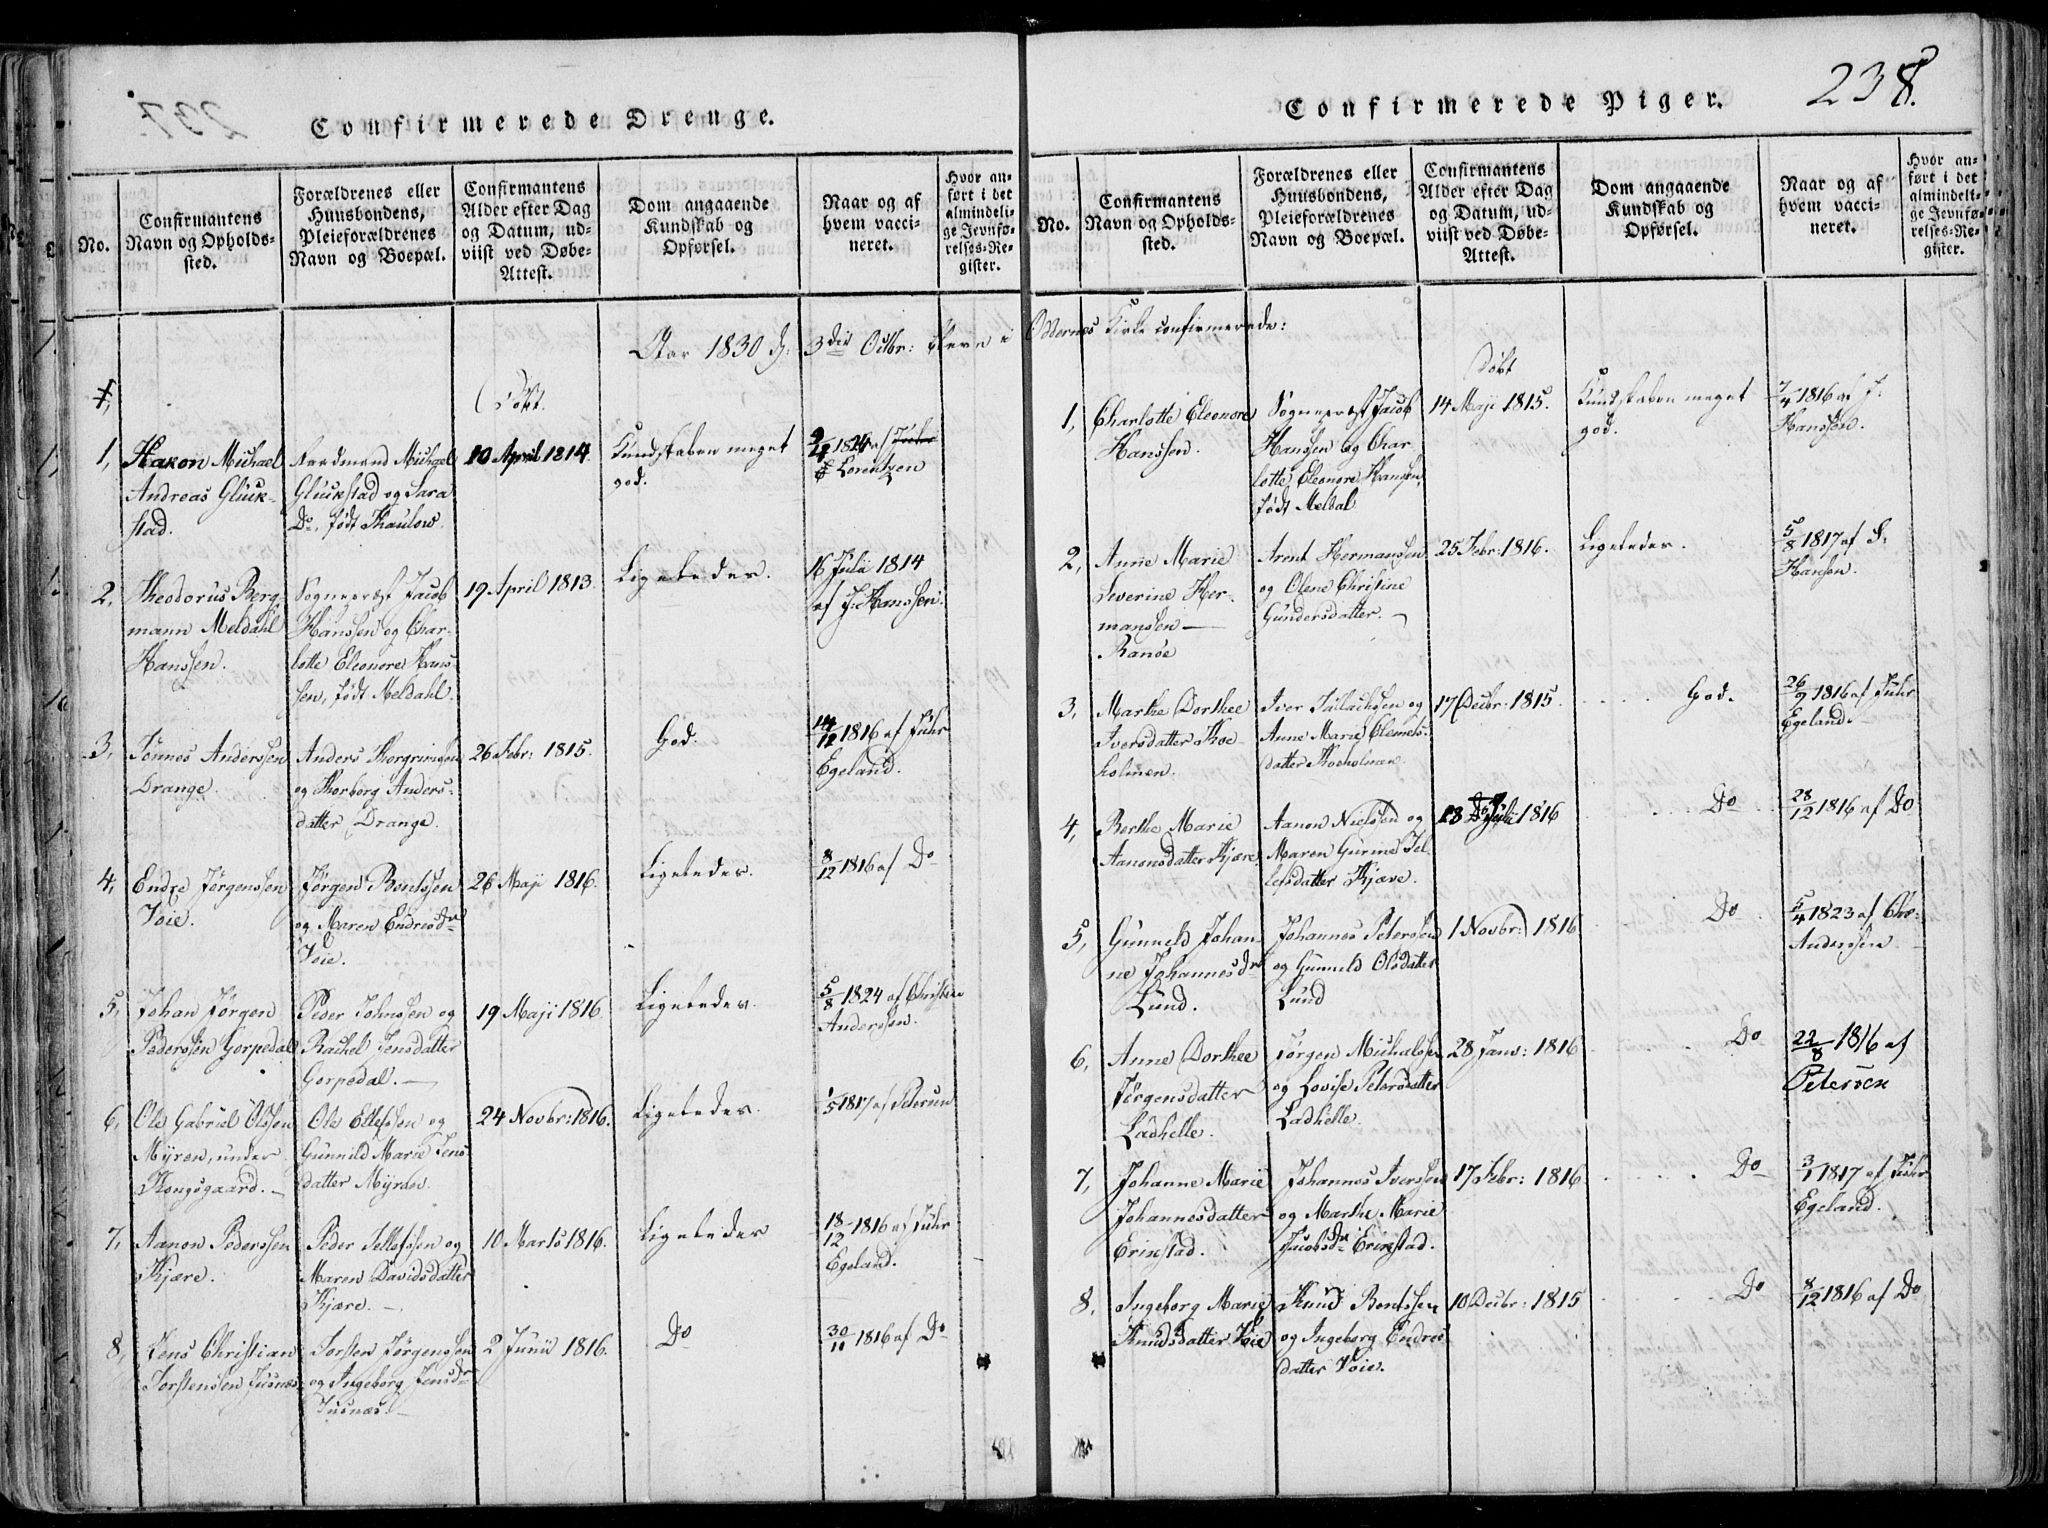 238.
Confirmerede Drenge.
No.
Confirmantens
Navn og Opholds-
sted.
Forældrenes eller
Huusbondens,
Pleieforældrenes
Navn og Boepæl.
Confirmantens
Alder efter Dag
og Datum, ud-
viist ved Døbe-
Attest.
Dom angaaende
Kundskab og
Opførsel.
Naar og af
hvem vacci-
neret.
Hvor an-
ført i det
almindeli-
ge Jevnfø-
relses-Re-
gister.
Aar 1830 d: 3die Octbr: bleve i Oddernes Kirke confirmerede:
Døbt.
1,
Hakon Michael
Andreas Gluck-
stad.
Kaadmand Michael
Gluckstad og Sara
Do, født Thaulow.
10 April 1814
Kundskaben meget
god.
1824 af
Lorentzen
2,
Theodorus Berg-
mann Meldahl
Hanssen.
Sognepræst Jacob
Hanssen og Char-
lotte Eleonore Hans-
sen, født Meldahl.
19 April 1813.
Ligeledes.
16 Julii 1814
af J: Hanssen.
3,
Tønnes Anderssen
Drange.
Anders Thorgrimsen
og Thorborg Anders-
datter Drange.
26 Febr: 1815.
God.
14/12 1816 af Fuhr
Egeland.
4,
Endre Jørgenssen
Voie.
Jørgen Bentssen
og Maren Endresdr
Voie.
26 Maji 1816.
Ligeledes.
8/12 1816 af Do
5,
Johan Jørgen
Pederssen Gorpedal
Peder Johnssen og
Rachel Jensdatter
Gorpedal.
19 Maji 1816.
Ligeledes.
5/8 1824 af Christen
Anderssen.
6,
Ole Gabriel Olssen
Myren, under
Kongsgaard.
Ole Ellefssen og
Gunnild Marie Jens
datter Myren.
24 Novbr: 1816.
Ligeledes.
1/5 1817 af Petersen
7,
Aanon Pederssen
Kjære.
Peder Tellefssen og
Maren Davidsdatter
Kjære.
10 Marts 1816.
Ligeledes
18/12 1816 af Fuhr
Egeland.
8,
Jens Christian
Torstensen Tusnæs
Torsten Jørgenssen
og Ingeborg Jensdr
Tusnæs.
2 Junii 1816.
Do
30/11 1816 af Do
Confirmerede Piger.
No.
Confirmantens
Navn og Opholds-
sted.
Forældrenes eller
Huusbondens,
Pleieforældrenes
Navn og Boepæl.
Confirmantens
Alder efter Dag
og Datum, ud-
viist ved Døbe-
Attest.
Dom angaaende
Kundskab og
Opførsel.
Naar og af
hvem vacci-
neret.
Hvor an-
ført i det
almindeli-
ge Jevnfø-
relses-Re-
gister.
Døbt
1,
Charlotte Eleonore
Hanssen.
Sognepræst Jacob
Hanssen og Char-
lotte Eleonore Hansen,
født Meldal
14 Maji 1815.
Kundskaben meget
god.
7/4 1816 af J:
Hanssen.
2,
Anne Marie
Severine Her-
manssen
Ranøe
Arent Hermanssen
og Olene Christine
Gundersdatter.
25 Febr: 1816.
Ligeledes.
5/8 1817 af J:
Hansen.
3,
Marthe Dorthee
Iversdatter Koe-
holmen.
Iver Tallachsen og
Anne Marie Clemets-
datter Koeholmen.
17 Decbr: 1815.
God.
26/9 1816 af Fuhr
Egeland.
4,
Berthe Marie
Aanonsdatter Kjære
Aanon Nielssen og
Maren Gurine Tel-
lefsdatter Kjære.
Julii 1816
Do
28/12 1816 af Do
5,
Gunneld Johan-
ne Johannesdr
Lund.
Johannes Peterssen
og Gunneld Olsdatter
Lund
1 Novbr: 1816
Do
5/4 1823 af Chr:
Anderssen.
6,
Anne Dorthee
Jørgensdatter
Ladhelle.
Jørgen Michaelsen
og Lovise Petersdatter
Ladhelle.
28 Janv: 1816
Do
22/8 1816 af
Petersen
7,
Johanne Marie
Johannesdatter
Erikstad.
Johannes Iverssen
og Marthe Marie
Jacobsdr Erikstad.
17 Febr: 1816
Do
3/1 1817 af Fuhr
Egeland.
8,
Ingeborg Marie
Knudsdatter Voie
Knud Bentssen
og Ingeborg Endres
datter Voie.
10 Decbr: 1815
Do
8/12 1816 af Do